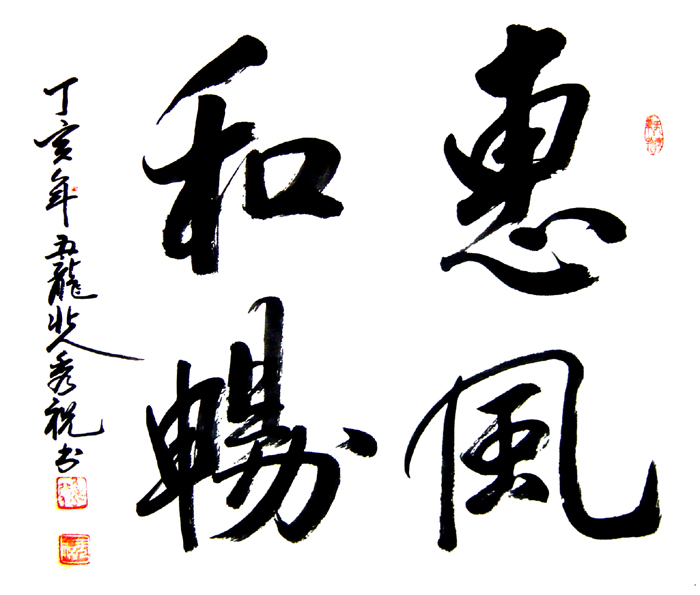 惠風
和暢
丁亥年五龍北人秀祝书